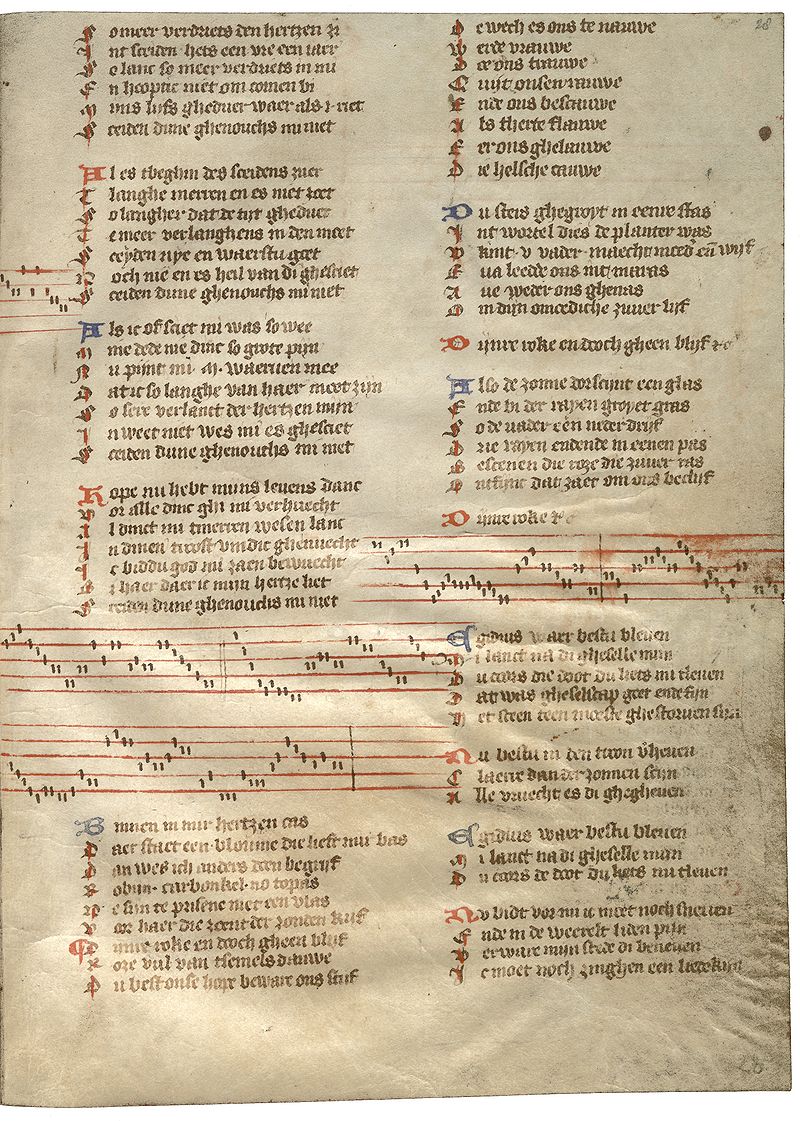 28
So meer verdriets den hertzen zi
Int sceiden hets een vre een iaer
So lanc so meer verdriets in mi
En hoeptic niet om comen bi
Mijns lijfs gheduer waer als i riet
Sceiden dune ghenouchs mi niet
Al es tbeghin des sceidens zuer
Tlanghe merren en es niet zoet
So langher dat de tijt gheduert
Te meer verlanghens in den moet
Sceyden nye en waerstu goet
Noch nie en es heil van di ghesciet
Sceiden dune ghenouchs mi niet
Als ic of sciet mi was so wee
Mine dede nie dinc so grote pijn
Nu pijnt mi .M. waeruen mee
Dat ic so langhe van haer moet zijn
So sere verlanct der hertzen mijn
In weet niet wes mi es ghesciet
Sceiden dune ghenouchs mi niet
Hope nu hebt mijns leuens danc
Vor alle dinc ghi mi verhuecht
Al dinct mi tmerren wesen lanc
In dinen troost vindic ghenuecht
Ic biddu god mi zaen bewuecht
Bi haer daer ic mijn hertze liet
Sceiden dune ghenouchs mi niet
Binnen in mijr hertzen cas
Daer staet een bloume die lieft mi bas
Dan wes ich anders doen begrijf
Robijn carbonkel no topas
Ne sijn te prisene niet een vlas
Vor haer die zoent der zonden kijf
Dijnre roke en doch gheen blijf
Roze vul van tsemels dauwe
Du best onse hope beware ons stijf
De wech es ons te nauwe
Werde vrauwe
Doe ons trauwe
Vuijt onsen rauwe
Ende ons bescauwe
Als therte flauwe
Eer ons ghelauwe
Die helsche cauwe
Du steis ghegroyt in eenre stas
Int wortel dies de planter was
Dkint v vader maecht moed' en̄ wijf
Eua leedde ons int maras
Aue weder ons ghenas
Om dijn omoediche zuuer lijf
Dijnre roke en doch gheen blijf et c
Also de zonne dorscijnt een glas
Ende bi der rayen groyet gras
So de vader een neder drijf
Drie rayen endende in eenen pas
Bescenen die roze die zuuer ras
Ontfinc dat zaer om ons beclijf
Dijnre roke et c
Egidius waer bestu bleuen
Mi lanct na di gheselle mijn
Du coors die doot du liets mi tleuen
Dat was gheselscap goet ende fijn
Het sceen teen moeste ghestoruen sijn
Nu bestu in den troon v'heuen
Claerre dan der zonnen scijn
Alle vruecht es di ghegheuen
Egidius waer bestu bleuen
Mi lanct na di gheselle mijn
Du coors de doot du liets mi tleuen
Nv bidt vor mi ic moet noch sneuen
Ende in de weerelt liden pijn
Verware mijn stede di beneuen
Ic moet noch zinghen een liedekijn
28